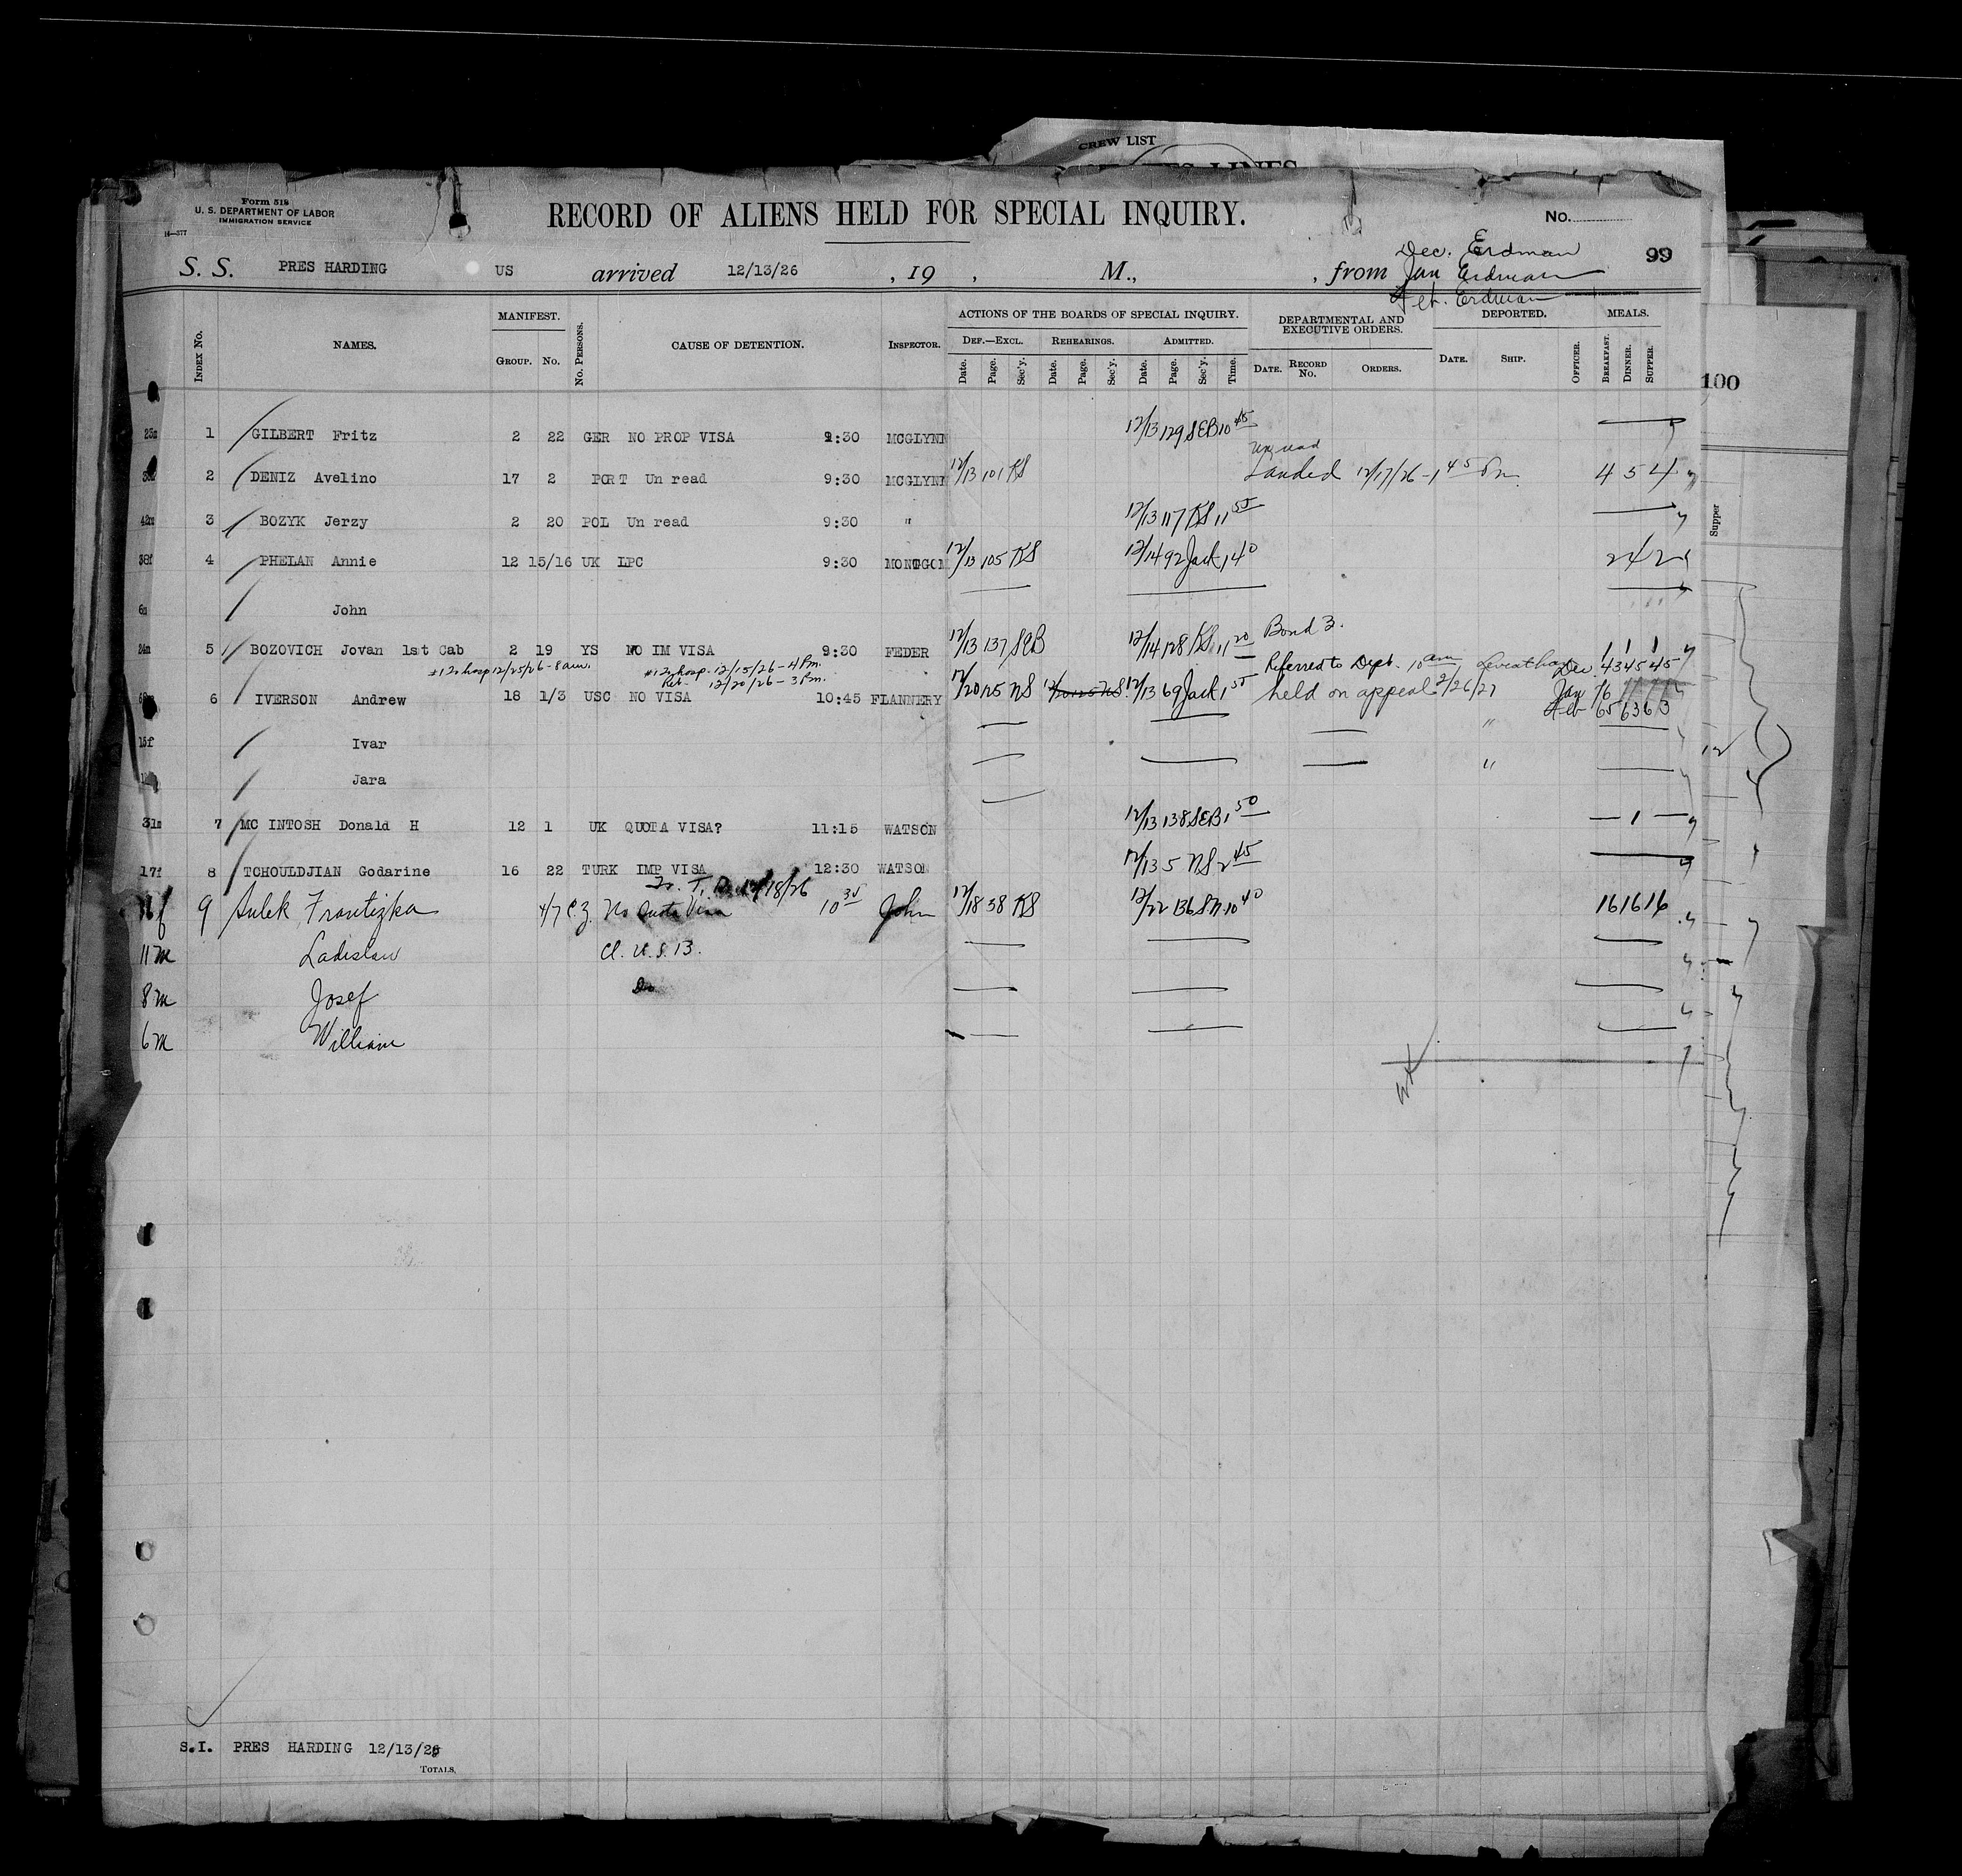 CREW LIST
Form 518
U. S. DEPARTMENT OF LABOR
IMMIGRATION SERVICE
14—377
RECORD OF ALIENS HELD FOR SPECIAL INQUIRY.
No.
99
Dec. Erdman
S. S. PRES HARDING US arrived 12/13/26 , 19 , M., , from Jan Erdman
Feb. Erdman
Index No. NAMES. MANIFEST. GROUP. No. No. Persons. CAUSE OF DETENTION. INSPECTOR.
ACTIONS OF THE BOARDS OF SPECIAL INQUIRY. DEF.—EXCL. Date. Page. Sec'y. REHEARINGS. Date. Page. Sec'y. ADMITTED. Date. Page. Sec'y. Time.
DEPARTMENTAL AND EXECUTIVE ORDERS. DATE. RECORD No. ORDERS.
DEPORTED. DATE. SHIP. OFFICER.
MEALS. BREAKFAST. DINNER. SUPPER.
100
Supper
1 GILBERT Fritz 2 22 GER NO PROP VISA 9:30 MCGLYNN 12/13 129 SEB 10 45
2 DENIZ Avelino 17 2 PORT Un read 9:30 MCGLYNN 12/13 101 KS Landed 12/17/26 - 1 45 Pm 4 5 4
42m 3 BOZYK Jerzy 2 20 POL Un read 9:30 " 12/13 117 KS 11 55
38f 4 PHELAN Annie 12 15/16 UK LPC 9:30 12/13 105 KS 12/14 92 Jack 1 40 2 2
6m John
24m 5 BOZOVICH Jovan 1st Cab 2 19 YS NO IM VISA 9:30 FEDER 12/13 137 SEB 12/14 128 KS 11 20 Bond 3.
#1 To hosp 12/25/26 - 8 am. #1 To hosp. 12/15/26 - 4 Pm.
12/20/26 - 3 Pm.
Referred to Dept. 10 am Leviathan Dec. 43 45 45
6 IVERSON Andrew 18 1/3 USC NO VISA 10:45 FLANNERY 12/20 125 NS 12/13 69 Jack 1 55 held on appeal 2/26/27 Jan 76
Feb 65 63 63
15f Ivar "
Jara "
31m 7 MC INTOSH Donald H 12 1 UK QUOTA VISA? 11:15 WATSON 12/13 138 SEB 1 50 1
17f 8 TCHOULDJIAN Godarine 16 22 TURK IMP VISA 12:30 WATSON 12/13 5 NS 2 45
12/18/26
9 Sulek Frantizka 4/7 C.Z. No Quota Visa 10 35 John 12/18 58 KS 12/22 136 SN 10 40 16 16 16
11 m Ladislav Cl. U.S.B.
8 m Josef Do
6 m William
S.I. PRES HARDING 12/13/26
TOTALS.